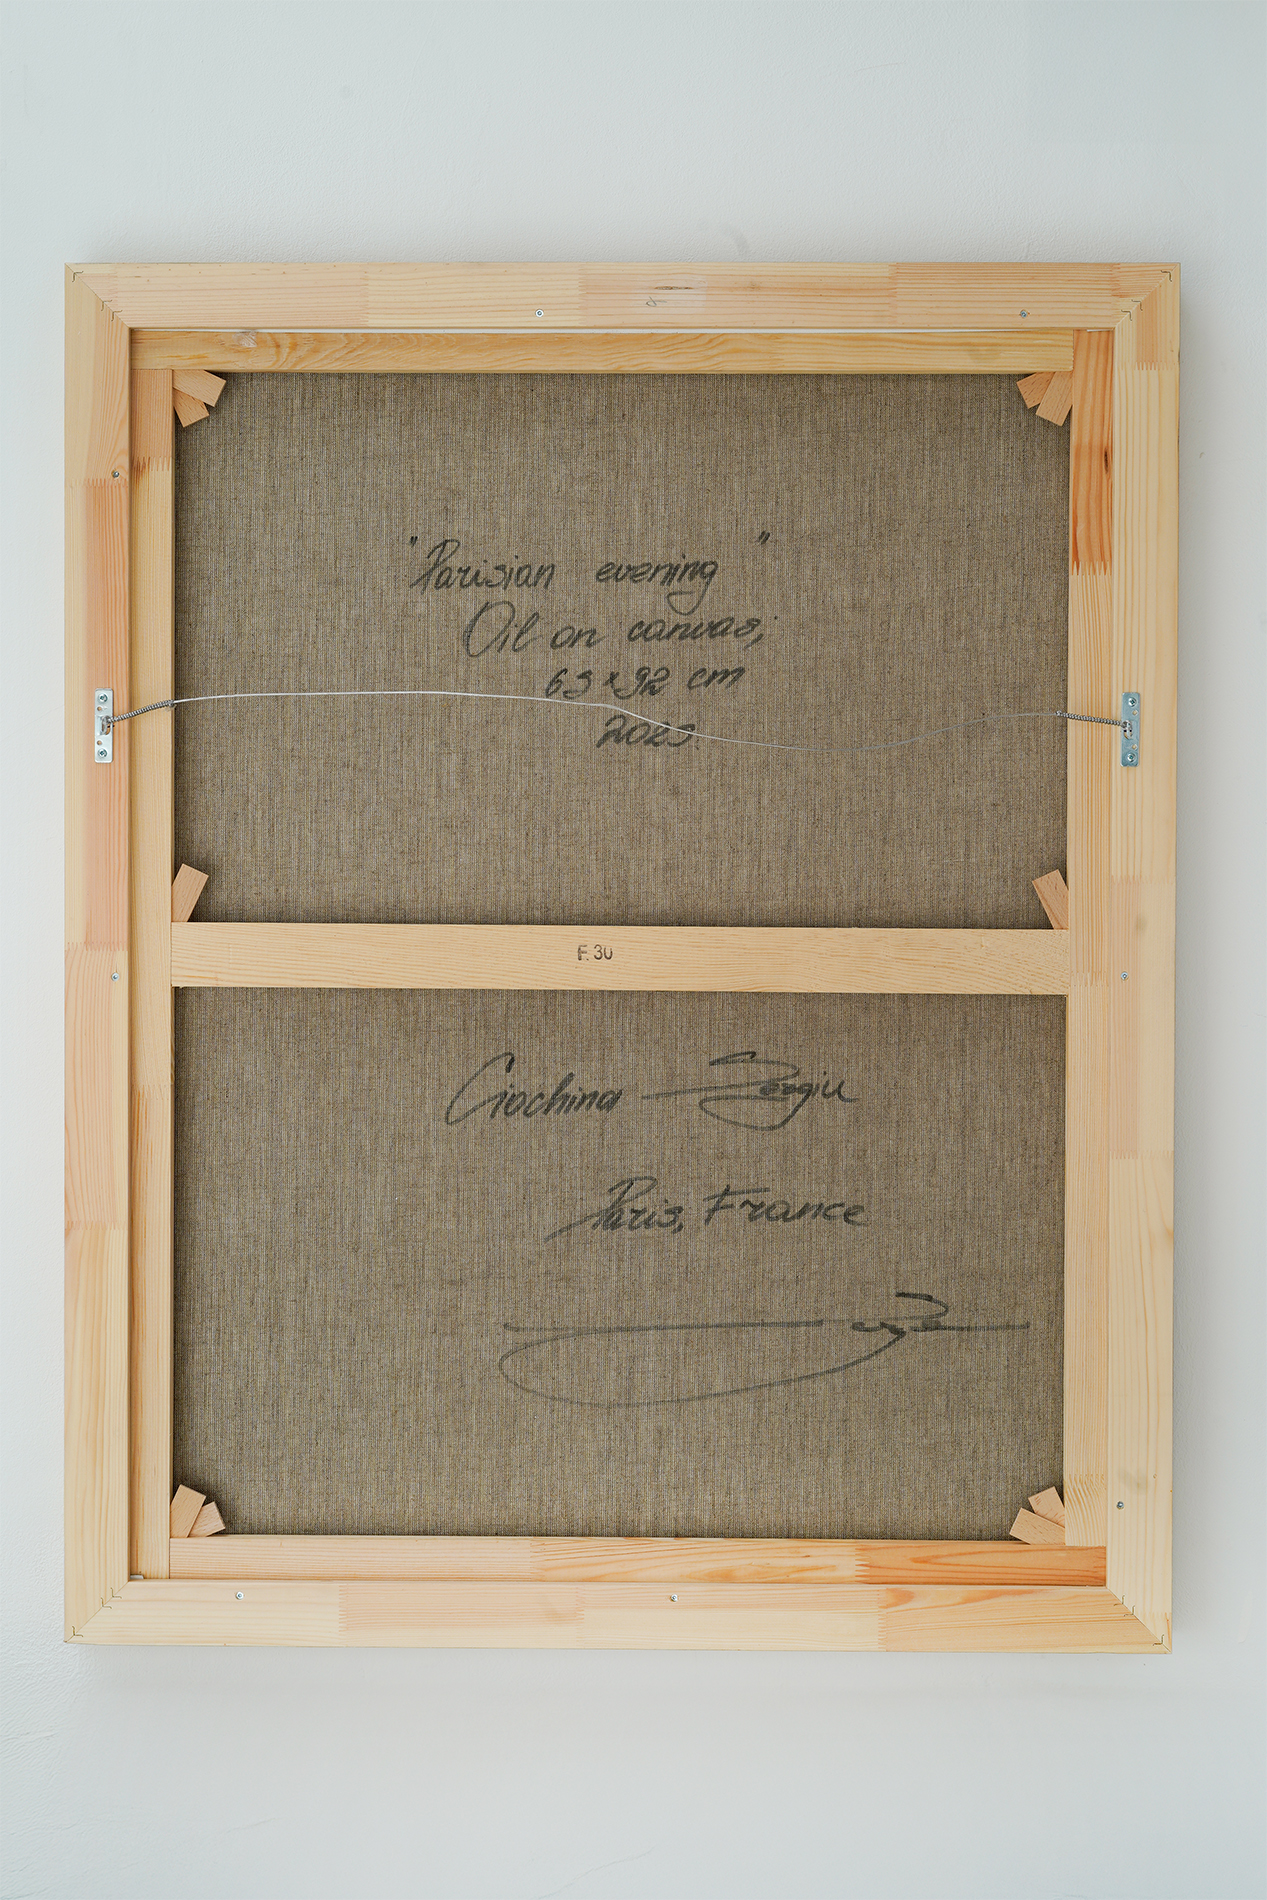 "Parisian evening"
Oil on canvas;
63 × 92 cm
2023.
F.30
Ciochina Sergiu
Paris, France